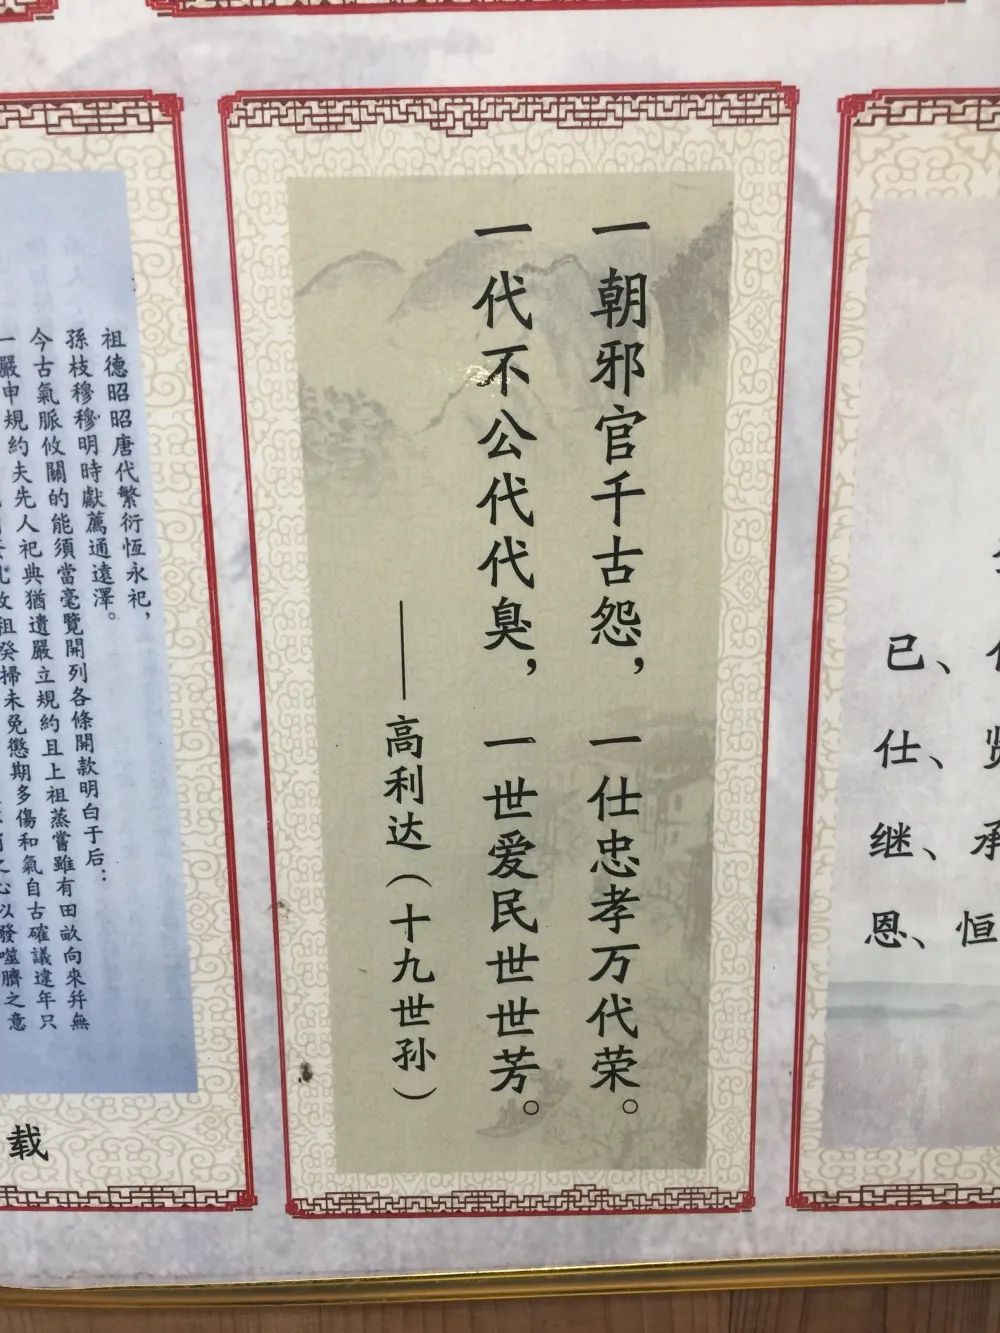 一朝邪官千古怨，一仕忠孝万代荣。
一代不公代代臭，一世爱民世世芳。
——高利达（十九世孙）
祖德昭昭唐代繁衍恆永祀，
孫枝穆穆明時獻薦通遠澤。
今古氣脈攸關的能須當毫覽開列各條開款明白于后：
一嚴申規約夫先人祀典猶遺嚴立規約且上祖蒸嘗雖有田畝向來并無
掃未免懲期多傷和氣自古確議違年只
以發噬臍之意
载
已、
仕、
继、承
恩、恒